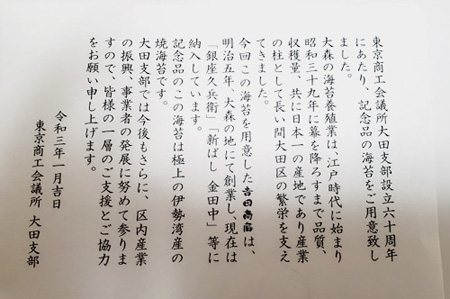 東京商工会議所大田支部設立六十周年
にあたり、記念品の海苔をご用意致し
ました。
大森の海苔養殖業は、江戸時代に始まり
昭和三十九年に幕を降ろすまで品質、
収穫量、共に日本一の産地であり産業
の柱として長い間大田区の繁栄を支え
てきました。
今回この海苔を用意した吉田商店は、
明治五年、大森の地にて創業し、現在は
「銀座久兵衛」「新ばし 金田中」等に
納入しています。
記念品のこの海苔は極上の伊勢湾産の
焼海苔です。
大田支部では今後もさらに、区内産業
の振興、事業者の発展に努めて参りま
すので、皆様の一層のご支援とご協力
をお願い申し上げます。
令和三年一月吉日
東京商工会議所 大田支部